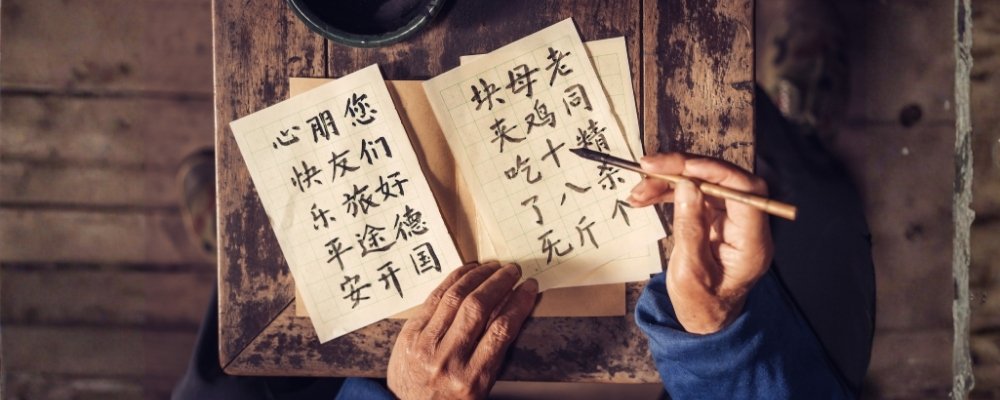 老同精杀个
母鸡十八斤
块夹吃了
您们好德国
朋友旅途开
心快乐平安